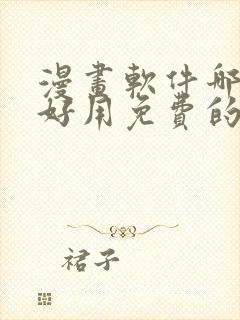 漫畫軟件哪
好用免費的
裙子